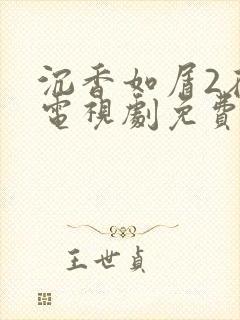 沉香如屑2
電視劇免費
王世貞